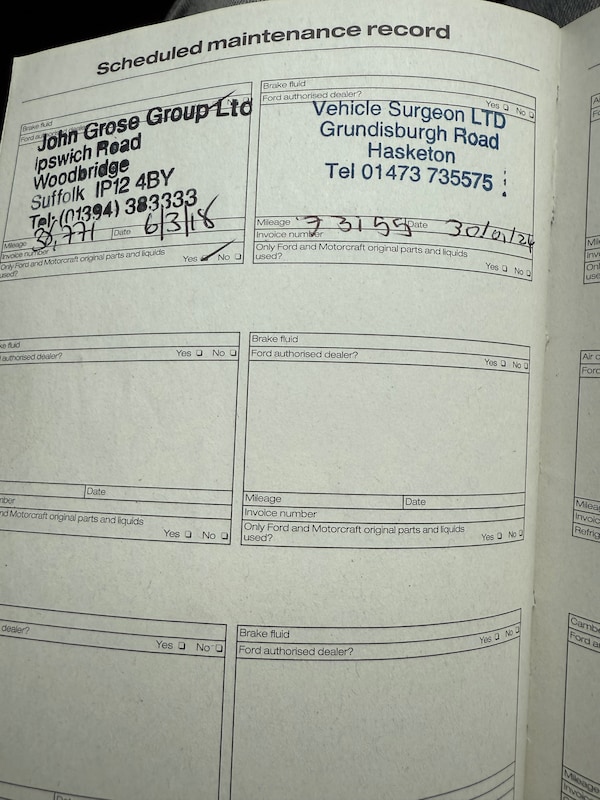 Scheduled maintenance record
Brake fluid
John Grose Group Ltd
Ipswich Road
Woodbridge
Suffolk IP12 4BY
Tel: (01394) 383333
Mileage 30,771 Date 6/3/18
Invoice number
Only Ford and Motorcraft original parts and liquids
used? Yes No
Brake fluid
Ford authorised dealer? Yes No
Vehicle Surgeon LTD
Grundisburgh Road
Hasketon
Tel 01473 735575
Mileage 73155 Date 30/01/24
Invoice number
Only Ford and Motorcraft original parts and liquids
used? Yes No
ke fluid
authorised dealer? Yes No
Date
mber
nd Motorcraft original parts and liquids
Yes No
Brake fluid
Ford authorised dealer? Yes No
Mileage Date
Invoice number
Only Ford and Motorcraft original parts and liquids
used? Yes No
dealer? Yes No
Brake fluid Yes No
Ford authorised dealer?
Air c
Ford
Mileag
Invoic
Refrig
Cambe
Ford a
Mileage
Invoic